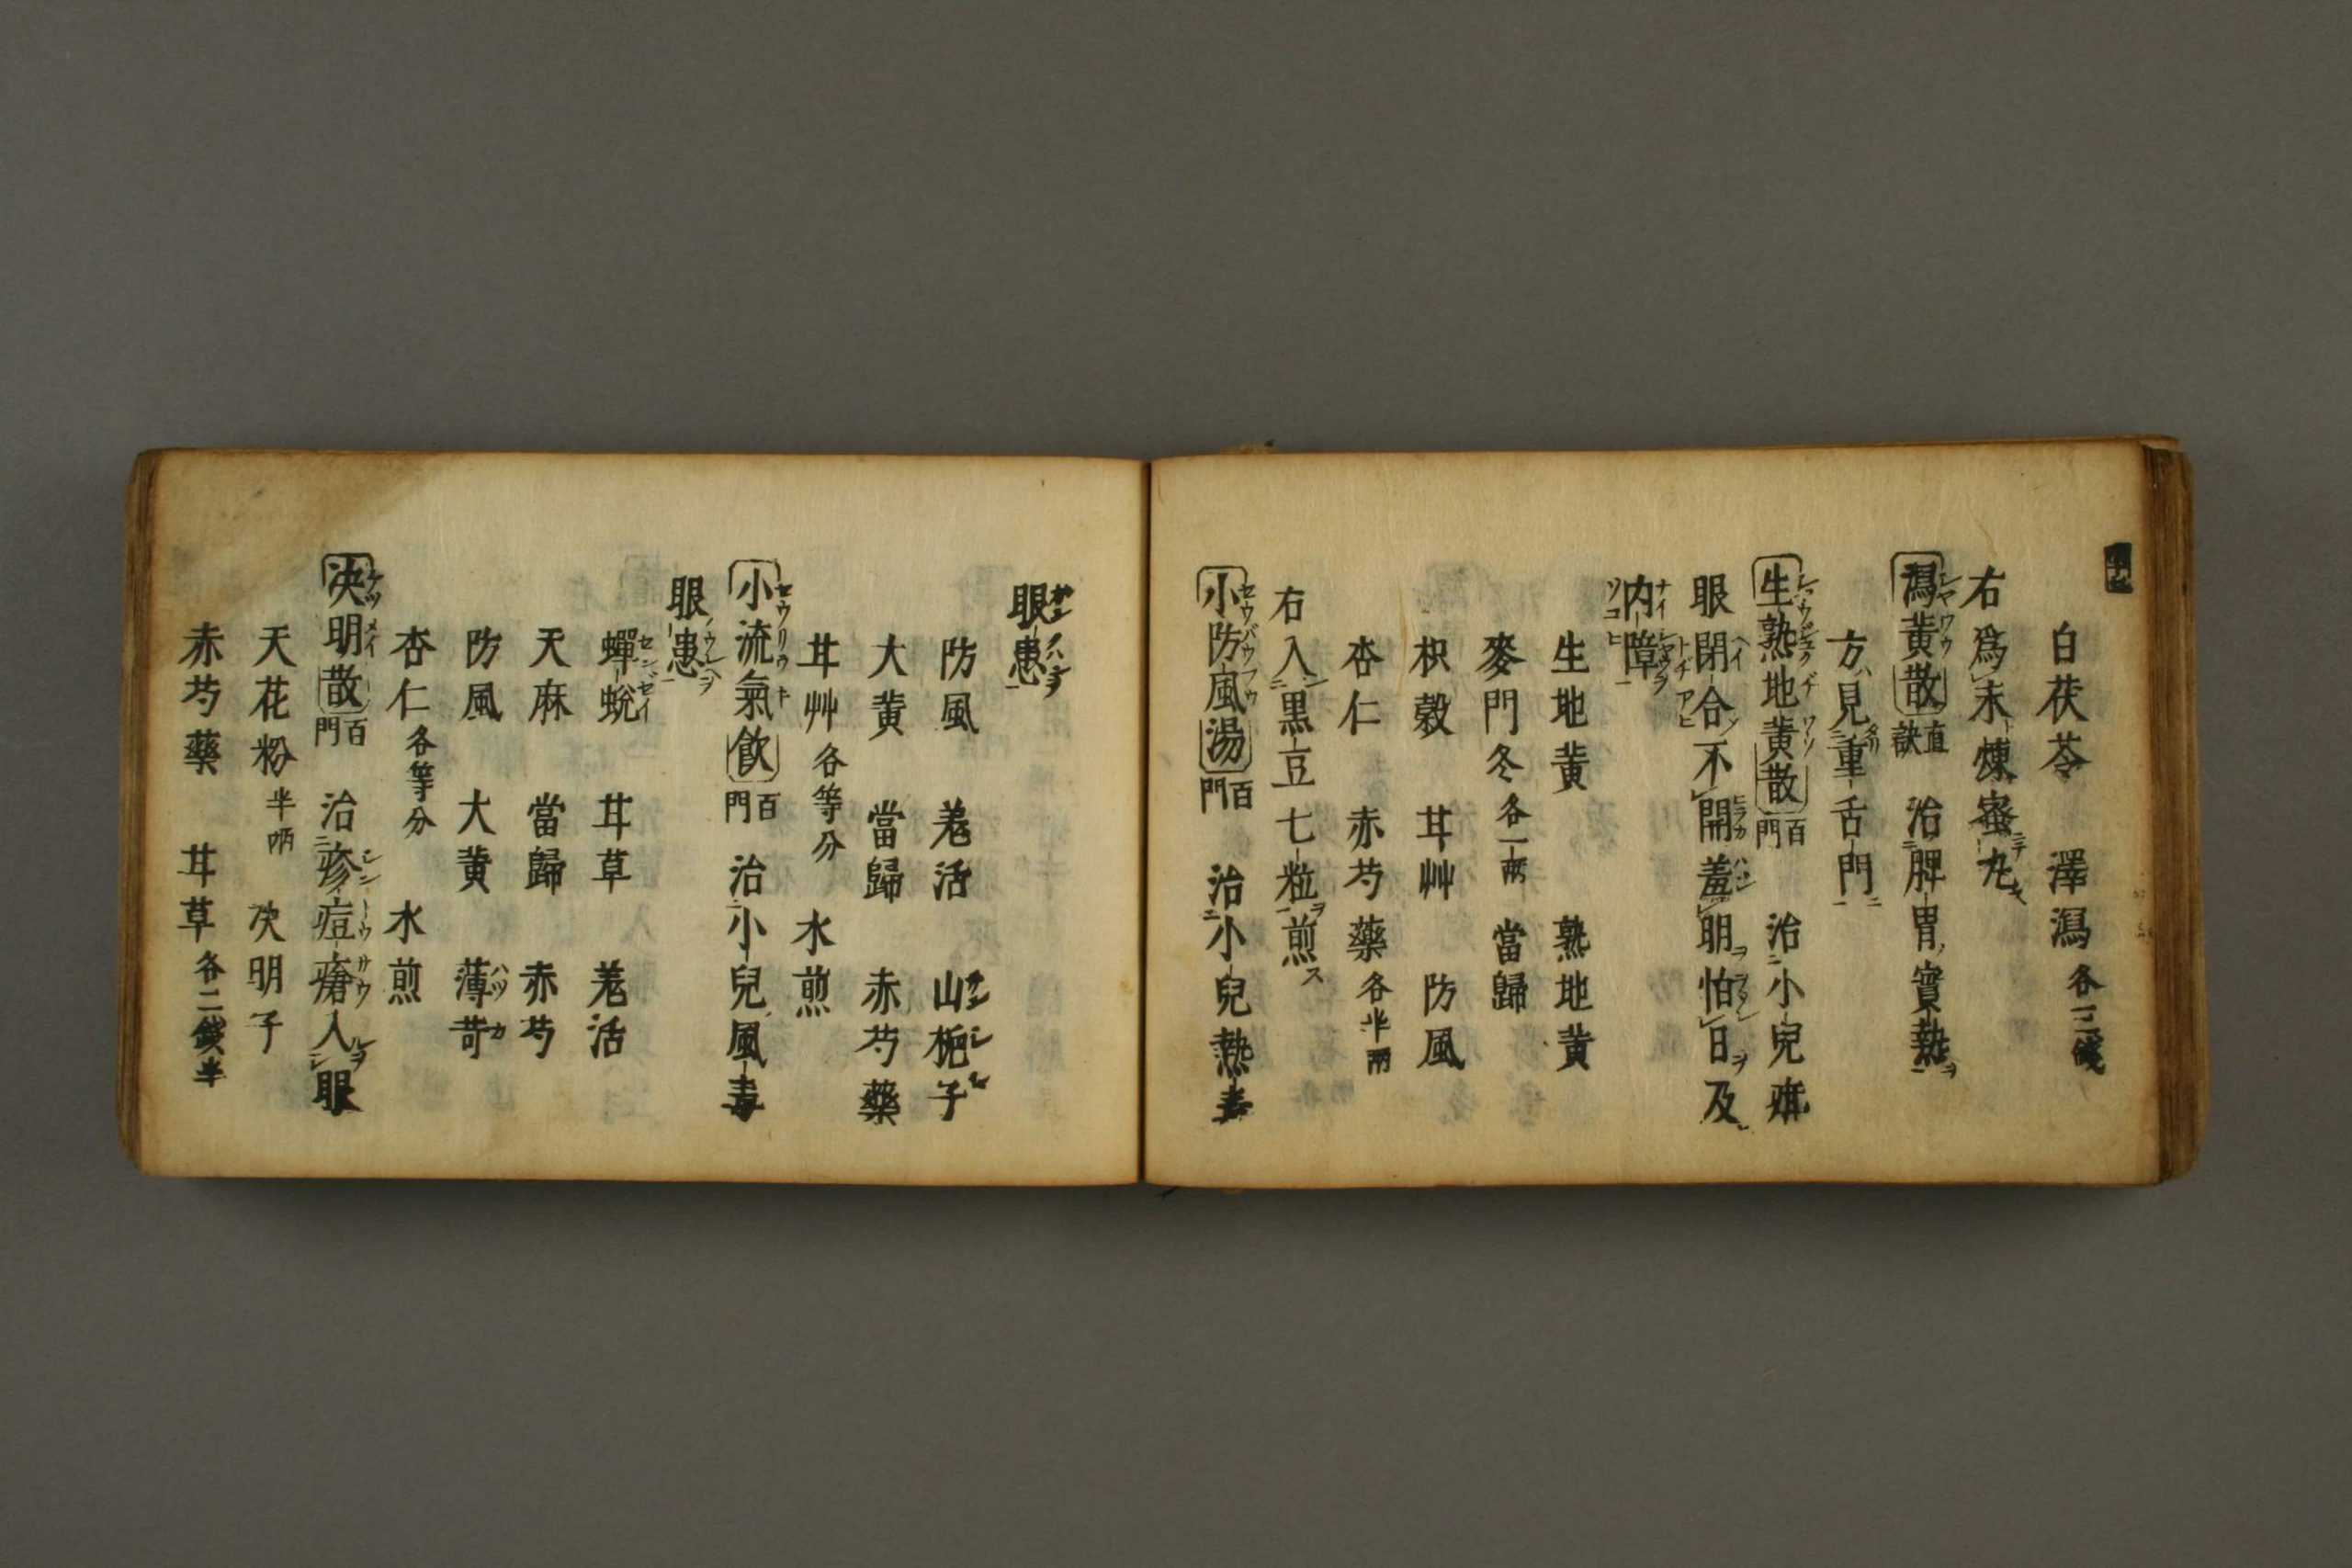 白茯苓 澤瀉各二錢
右爲末煉蜜丸
瀉黄散 直訣 治脾胃實熱
方見重舌門
生熟地黄散 百門 治小兒疳
眼閉合不開羞明怕日及
内障
生地黄 熟地黄
麥門冬各一兩 當歸
枳殻 甘艸 防風
杏仁 赤芍藥各半兩
右入黒豆七粒煎
小防風湯 百門 治小兒熱毒
眼患
防風 羗活 山梔子
大黄 當歸 赤芍藥
甘艸各等分 水煎
小流氣飲 百門 治小兒風毒
眼患
蟬蛻 甘草 羗活
天麻 當歸 赤芍
防風 大黄 薄苛
杏仁各等分 水煎
决明散 百門 治疹痘瘡入眼
天花粉半兩 决明子
赤芍藥 甘草各二錢半